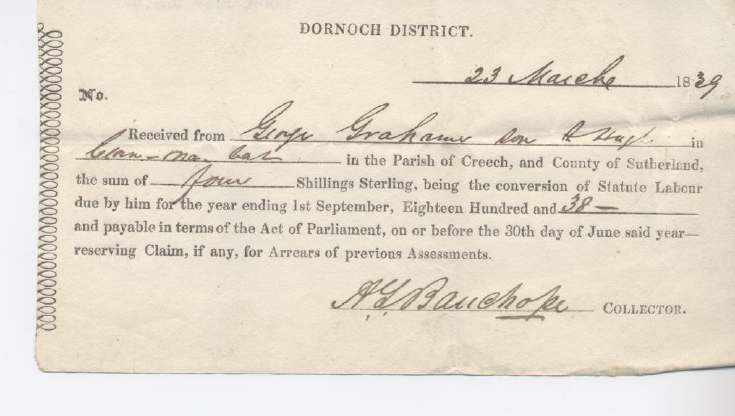 DORNOCH DISTRICT.
23 Marche 1839
No.
Received from George Grahame son to Hugh in
in the Parish of Creech, and County of Sutherland,
the sum of four Shillings Sterling, being the conversion of Statute Labour
due by him for the year ending 1st September, Eighteen Hundred and 38 —
and payable in terms of the Act of Parliament, on or before the 30th day of June said year—
reserving Claim, if any, for Arrears of previous Assessments.
COLLECTOR.